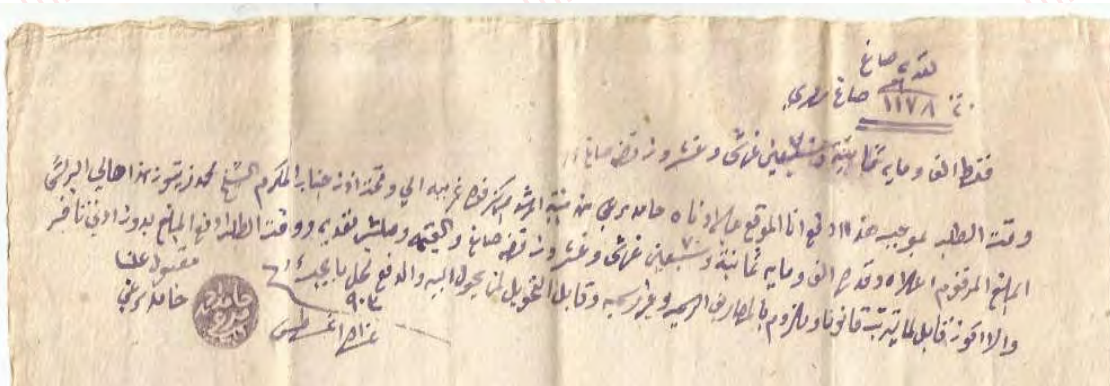 نقديه صاغ
١١٧٨ صاغ ميري
فقط الف ومايه ثمانية وسبعين غرش وعشرون فضه صاغ
وقت الطلب بموجب هذا ادفع انا الموقع علي ادناه حامد من منية المرشد مركز فوه غربيه الي وتحت اذن جناب المكرم الشيخ محمد زيتون من اهالي البرلس
المبلغ المرقوم اعلاه وقدره الف ومايه ثمانية وسبعين غرش وعشرون فضه صاغ والقيمه وصلتني نقديه ووقت الطلب ادفع المبلغ بدون ادني تاخر
والا اكون قابل لما يترتب قانونا وملزوم بالمصاريف الرسميه وغير رسميه وقابل التحويل لمن يحول اليه والدفع بمحل
٩٠٣
اغسطس
مقبول علينا
حامد